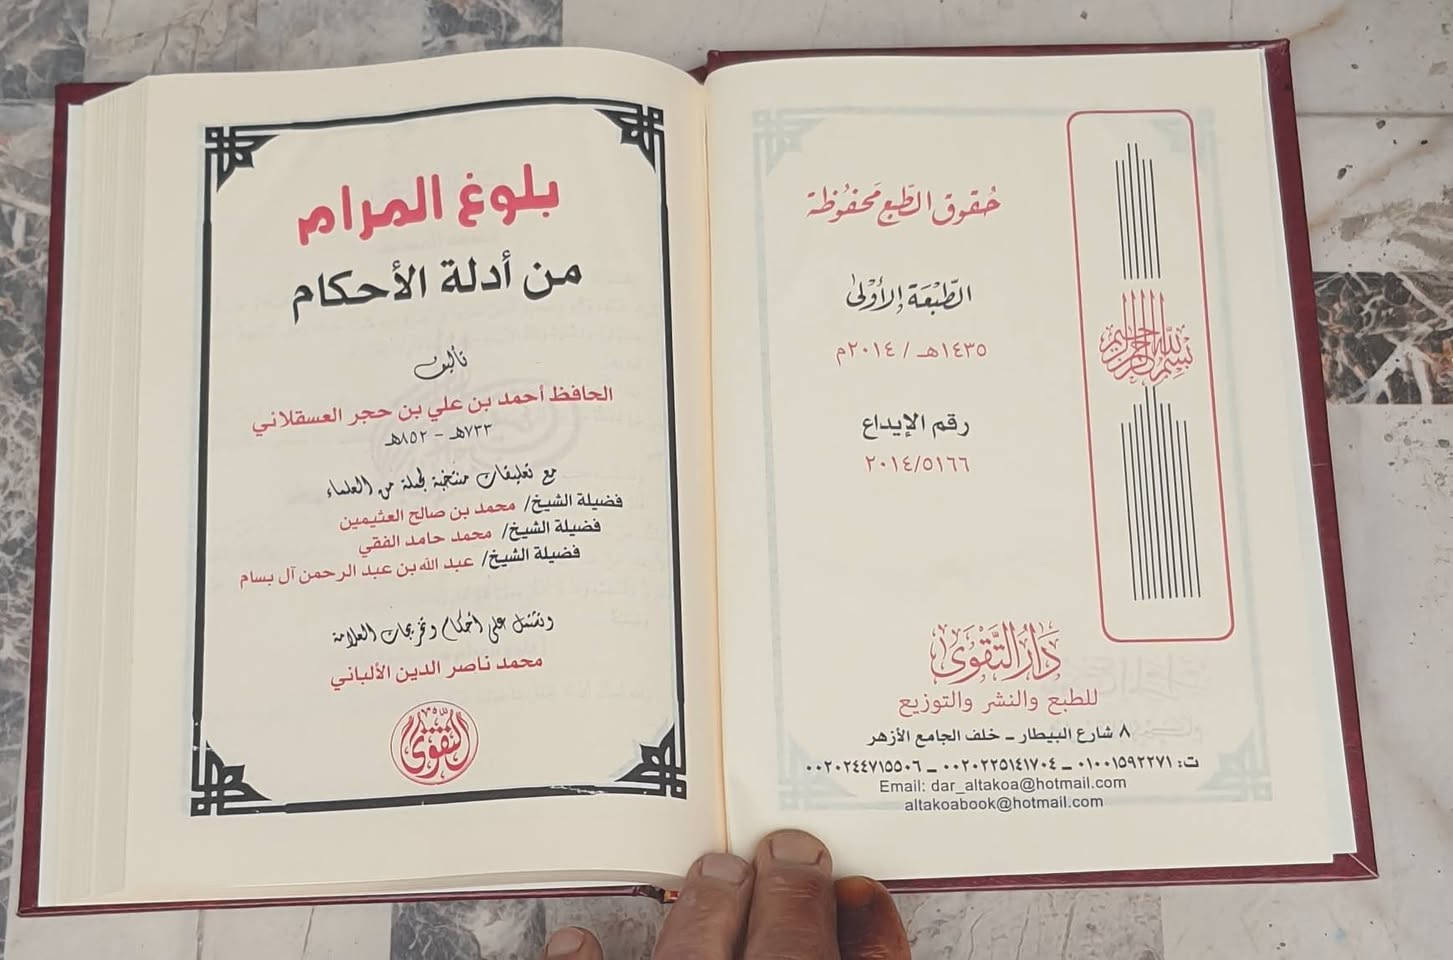 حُقوق الطَّبع مَحفُوظة
الطَّبْعَة الأُوْلىٰ
١٤٣٥هـ / ٢٠١٤م
رقم الإيداع
٢٠١٤/٥١٦٦
بسم الله الرحمن الرحيم
دَارُ التَّقْوَىٰ
للطبع والنشر والتوزيع
٨ شارع البيطار ـ خلف الجامع الأزهر
ت: ٠١٠٠١٥٩٢٢٧١ ـ ٠٠٢٠٢٢٥١٤١٧٠٤ ـ ٠٠٢٠٢٤٤٧١٥٥٠٦
Email: dar_altakoa@hotmail.com
altakoabook@hotmail.com
بلوغ المرام
من أدلة الأحكام
تأليف
الحافظ أحمد بن علي بن حجر العسقلاني
٧٣٣هـ – ٨٥٢هـ
مع تعليقات منتخبة لجملة من العلماء
فضيلة الشيخ/ محمد بن صالح العثيمين
فضيلة الشيخ/ محمد حامد الفقي
فضيلة الشيخ/ عبد الله بن عبد الرحمن آل بسام
وتشتمل على أحكام وتخريجات العلامة
محمد ناصر الدين الألباني
التقوى